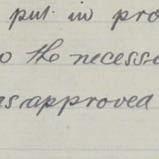 put in pro
o the necessi
as approved